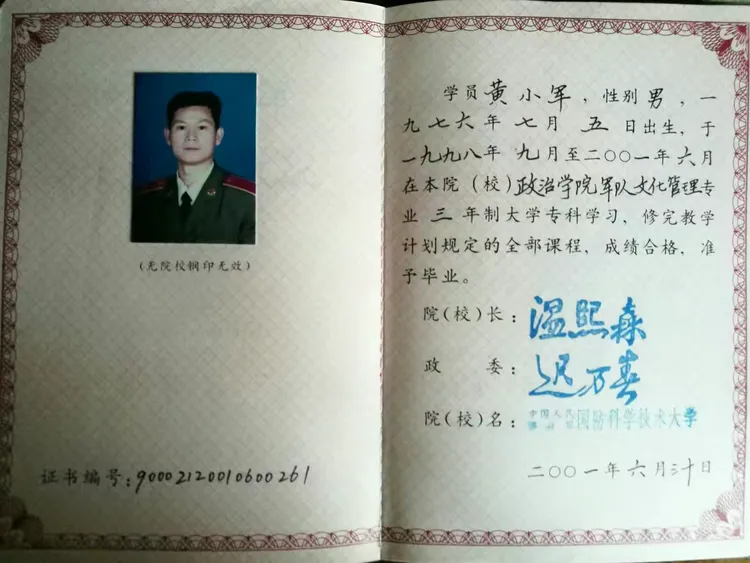 (无院校钢印无效)
证书编号:90002120010600261
学员黄小军,性别男,一
九七六年七月五日出生,于
一九九八年九月至二〇〇一年六月
在本院(校)政治学院军队文化管理专
业三年制大学专科学习,修完教学
计划规定的全部课程,成绩合格,准
予毕业。
院(校)长:温熙森
政委:迟万春
院(校)名:中国人民解放军国防科学技术大学
二〇〇一年六月卅日